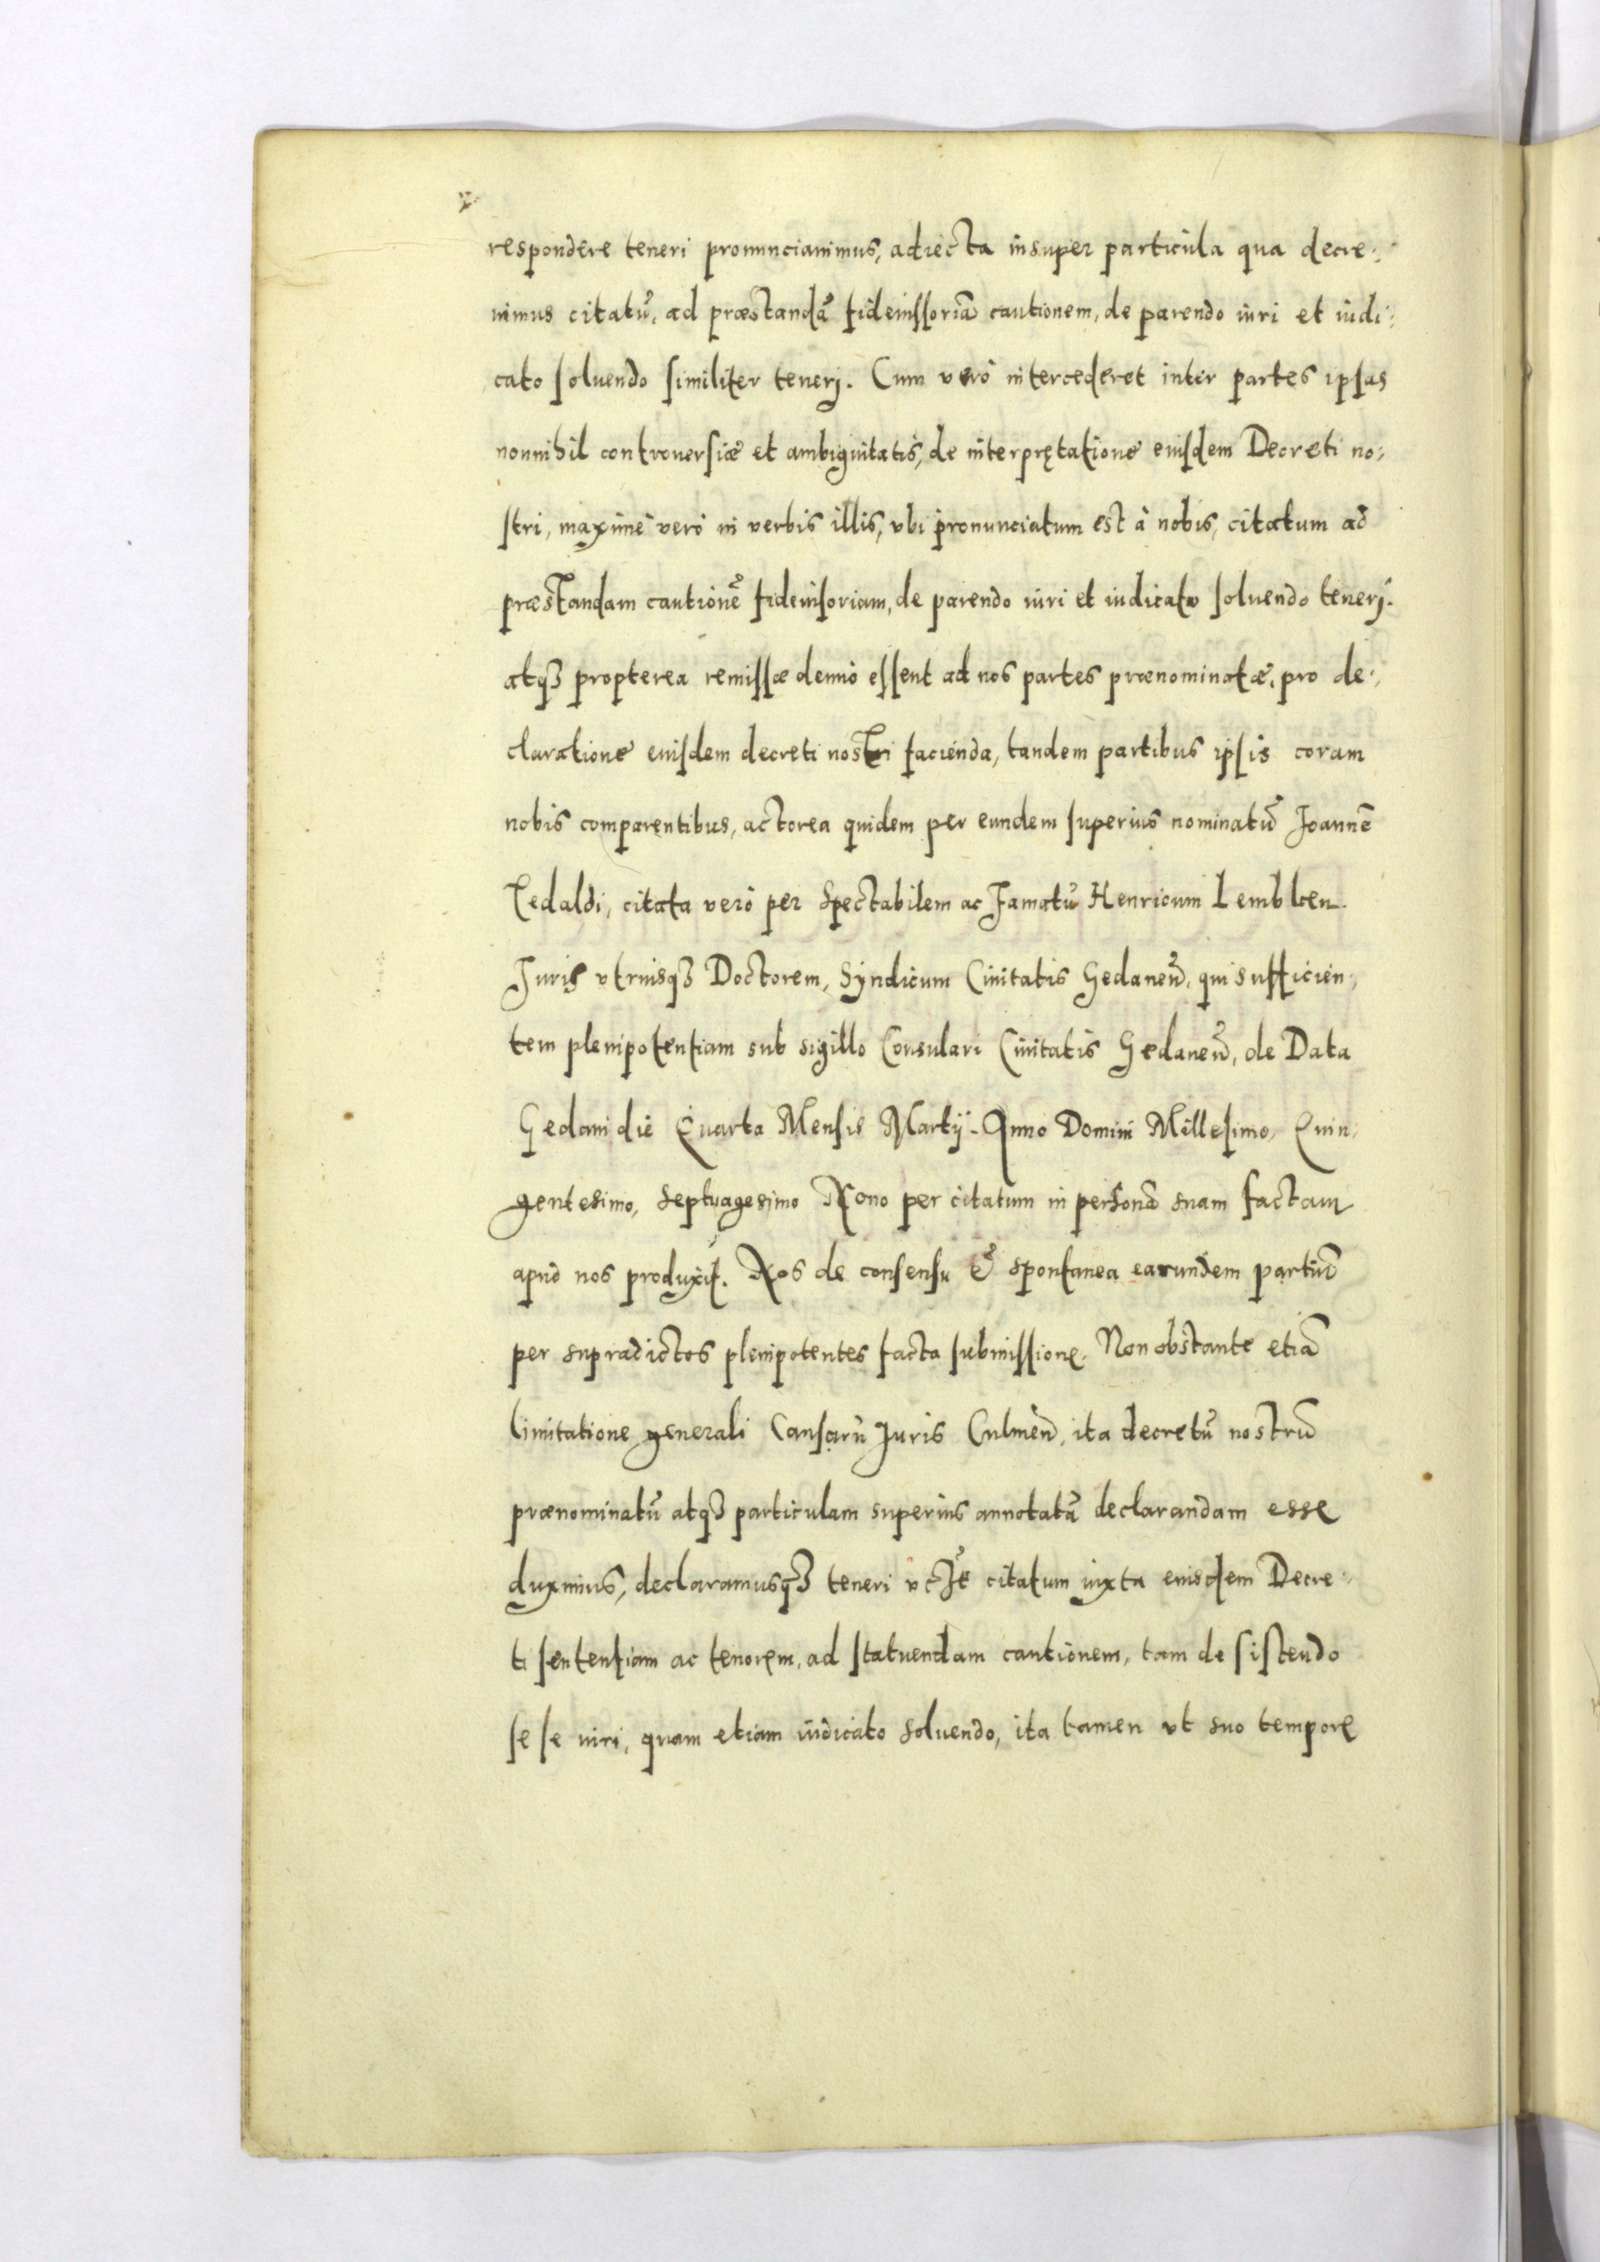 respondere teneri pronunciauimus, adiecta insuper particula qua decre-
uimus citatũ, ad præstandã fideiussoriã cautionem, de parendo iuri et iudi-
cato soluendo similiter tenerj. Cum verò intercederet inter partes ipsas
nonnihil controuersiæ et ambiguitatis, de interprętatione eiusdem Decreti no-
stri, maximè verò in verbis illis, vbi pronunciatum est à nobis, citatum ad
præstandam cautionẽ fideiusoriam, de parendo iuri et iudicato soluendo tenerj.
atqꝫ propterea remissæ denuò essent ad nos partes prænominatæ, pro de-
claratione eiusdem decreti nostri facienda, tandem partibus ipsis coram
nobis comparentibus, actorea quidem per eundem superius nominatũ Joannẽ
Tedaldi, citata verò per Spectabilem ac Famatũ Henricum Lemblcen
Juris vtriusqꝫ Doctorem, Syndicum Ciuitatis Gedaneñ, qui sufficien-
tem plenipotentiam sub sigillo Consulari Ciuitatis Gedaneñ, de Data
Gedani die Quarta Mensis Martij. Anno Domini Millesimo, Quin-
gentesimo, Septuagesimo Nono per citatum in personã suam factam
apud nos produxit. Nos de consensu & spontanea earundem partiũ
per supradictos plenipotentes facta submissione. Non obstante etiã
limitatione generali Causarũ Juris Culmeñ, ita decretũ nostrũ
prænominatũ atqꝫ particulam superius annotatã declarandam esse
duximus, declaramusqꝫ teneri citatum iuxta eiusdem Decre-
ti sententiam ac tenorem, ad statuendam cautionem, tam de sistendo
se se iuri, quam etiam iudicato soluendo, ita tamen vt suo tempore